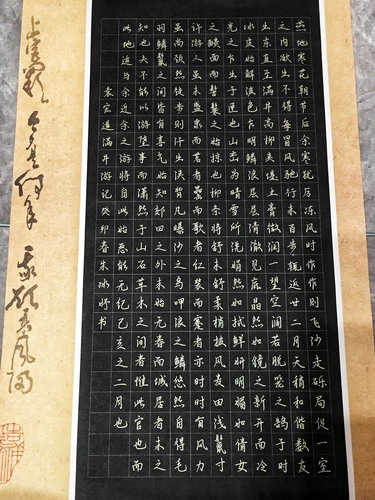 燕地寒花朝节后余寒犹厉冻风时作作则飞沙走砾局促一室
之内欲出不得每冒风驰行未百步辄返廿二日天稍和偕数友
出东直至满井高柳夹堤土膏微润一望空阔若脱笼之鹄于时
冰皮始解波色乍明鳞浪层层清澈见底晶晶然如镜之新开而冷
光之乍出于匣也山峦为晴雪所洗娟然如拭鲜妍明媚如倩女
之靧面而髻鬟之始掠也柳条将舒未舒柔梢披风麦田浅鬣寸
许游人虽未盛泉而茗者罍而歌者红装而蹇者亦时时有风力
虽尚劲然徒步则汗出浃背凡曝沙之鸟呷浪之鳞悠然自得毛
羽鳞鬣之间皆有喜气始知郊田之外未始无春而城居者未之
知也夫不能以游堕事而潇然于山石草木之间者惟此官也而
此地适与余近余之游将自此始恶能无纪己亥之二月也
袁宏道满井游记 癸卯春朱冰妤书
上宫阙 今夕是何年 我欲乘风归